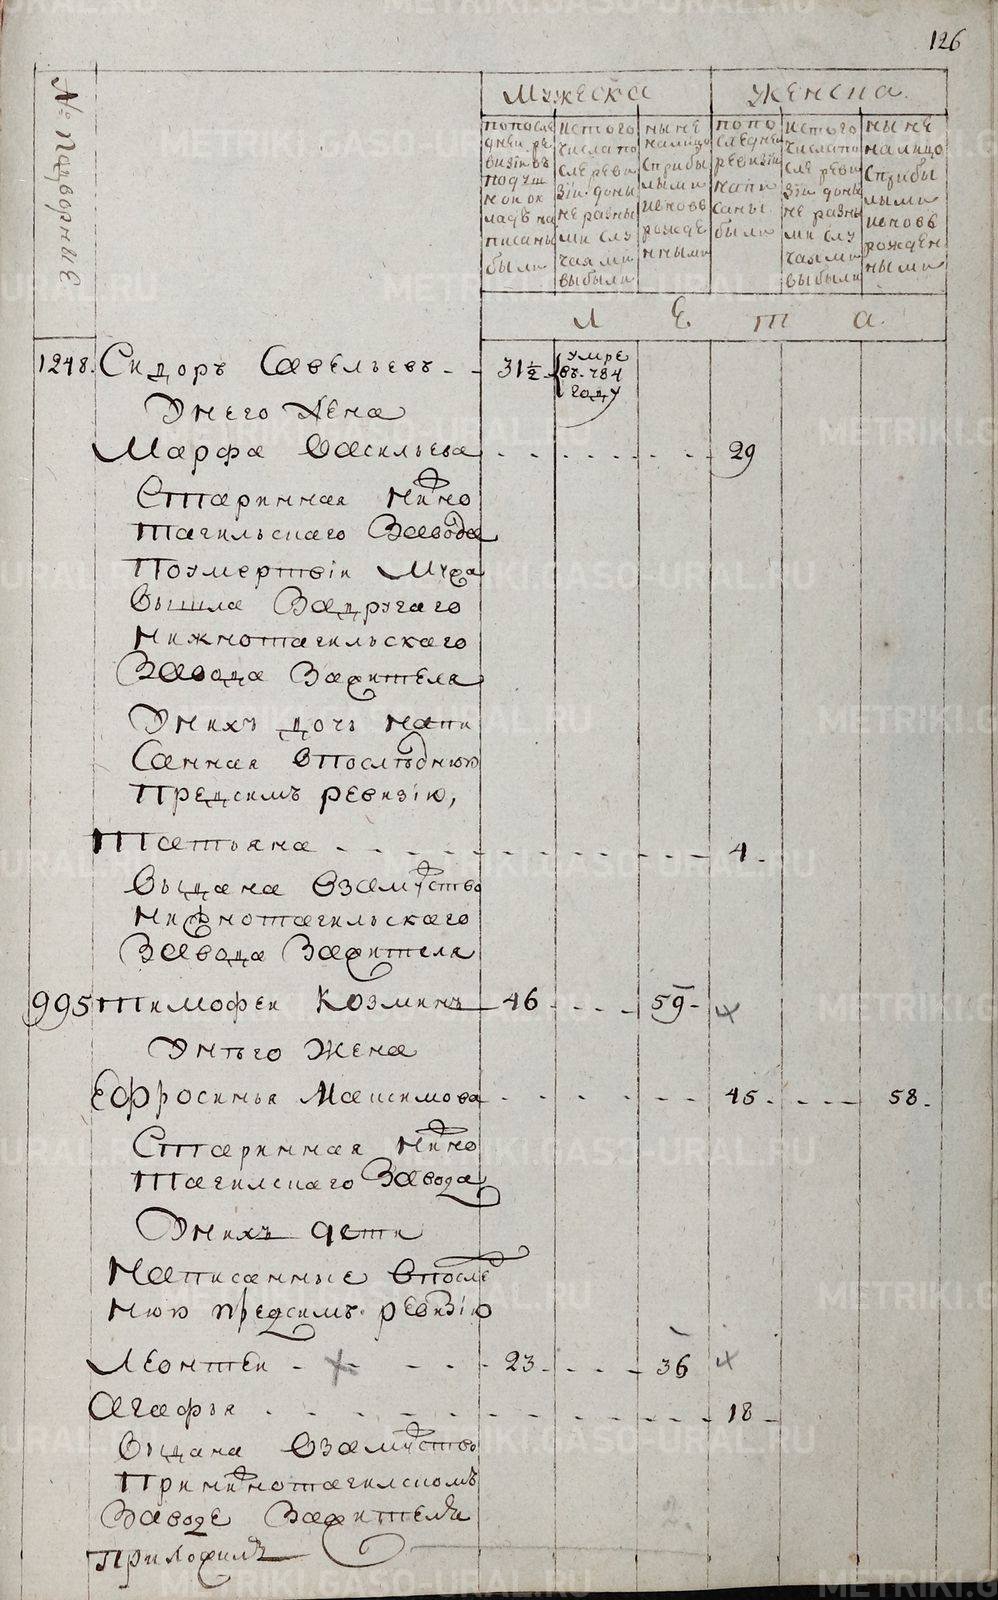 126
№ Подворные
Мужеска
Женска.
попосле
дней ре
визiи въ
подуш
ной ок
ладъ на
писаны
были
изтого
числапо
сле реви
зiи доны
не разны
ми слу
чаями
выбыли
ныне
налицо
сприбы
лыми
ивновь
рожде
нными
попо
следней
ревизiи
напи
саны
были
изтого
числапо
сле реви
зiи доны
не разны
ми слу
чаями
выбыли
ныне
налицо
сприбы
лыми
ивновь
рожден
ными
Лета.
1248. Сидоръ Савельевъ 31½ умре
въ 784
году
Унего Жена
Марфа Васильева 29
Старинная Нижно
тагильскаго Завода
Поумертвiи Мужа
Вышла Задругаго
нижнотагильскаго
Завода Зажителя
Унихъ дочь напи
санная впоследнюю
предсимъ ревизiю,
Татьяна 4.
Выдана Взамужство
нижнотагильскаго
Завода Зажителя
995 Тимофеи Козминъ 46 59
Унъего Жена
Ефросинья Максимова 45. 58.
Старинная Нижно
Тагилскаго Завода
Унихъ дети
Написанные впосле
нюю предсимъ ревизiю
Леонтеи 23 36
Агафья 18
Выдана Взамужство
Принижнотагилскомъ
Заводе Зажителя
Приложилъ
2.
METRIKI.GASO-URAL.RU